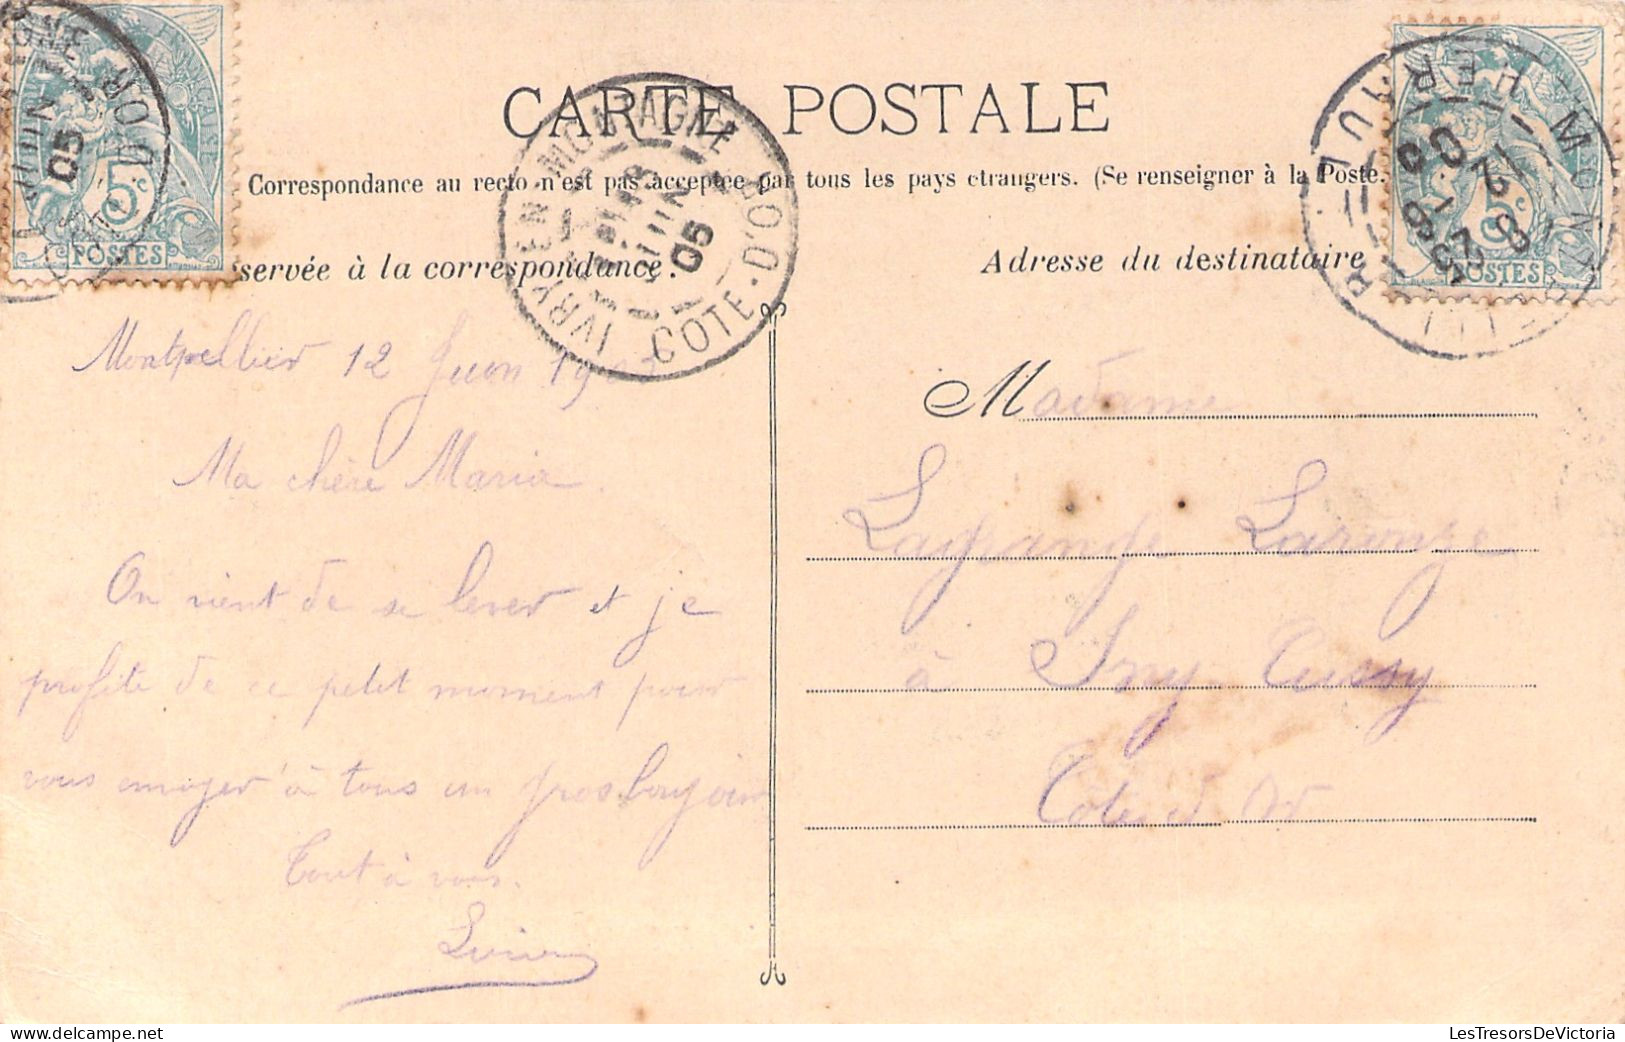 CARTE POSTALE
Correspondance au recto n'est pas acceptée par tous les pays étrangers. (Se renseigner à la Poste.
servée à la correspondance.
Adresse du destinataire
5c
POSTES
5c
POSTES
IVRY EN MONTAGNE
COTE-D'OR
JUIN
05
Montpellier 12 Juin 190
Ma chère Maria.
On vient de se lever et je
profite de ce petit moment pour
vous envoyer à tous un gros bonjour
Tout à vous.
Madame
Lagrange Laronze
à Ivry Cussy
Côte d'Or
LesTresorsDeVictoria